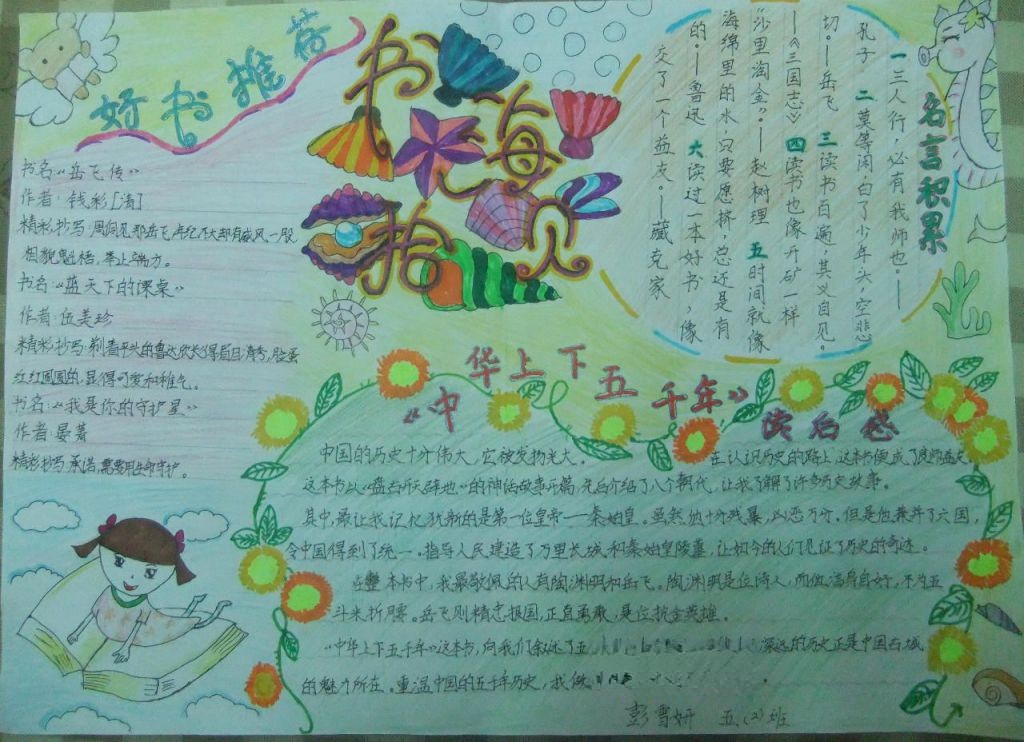 好书推荐
书名：“岳飞传”
作者：钱彩[清]
精彩抄写：周侗见那岳飞年纪不大却有威风一股
相貌魁梧，举止端方。
书名：“蓝天下的课桌”
作者：伍美珍
精彩抄写：剃着平头的鲁达欣长得眉目清秀，脸蛋
红红圆圆的，显得可爱和稚气。
书名：“我是你的守护星”
作者：晏菁
精彩抄写：承诺，需要用生命守护。
书海拾贝
名言积累
一三人行，必有我师也。——
孔子 二莫等闲白了少年头，空悲
切。——岳飞 三读书百遍，其义自见。
——《三国志》 四读书也像开矿一样
“沙里淘金”。——赵树理 五时间就像
海绵里的水，只要愿挤，总还是有
的。——鲁迅 六读过一本好书，像
交了一个益友。——臧克家
“中华上下五千年”读后感
中国的历史十分伟大，它被发扬光大。在认识历史的路上，这本书便成了良师益友
这本书以“盘古开天辟地”的神话故事开篇，先后介绍了八个朝代，让我了解了许多历史故事。
其中，最让我记忆犹新的是第一位皇帝——秦始皇。虽然他十分残暴，凶恶万分，但是他兼并了六国，
令中国得到了统一。指导人民建造了万里长城和秦始皇陵墓，让如今的人们见证了历史的奇迹。
在整本书中，我最敬佩的人有陶渊明和岳飞。陶渊明是位诗人，而做洁身自好，不为五
斗米折腰。岳飞则精忠报国，正直勇敢，是位抗金英雄。
“中华上下五千年”这本书，向我们叙述了五 深远的历史正是中国古城
的魅力所在。重温中国的五千年历史，我做
彭雪妍 五（2）班